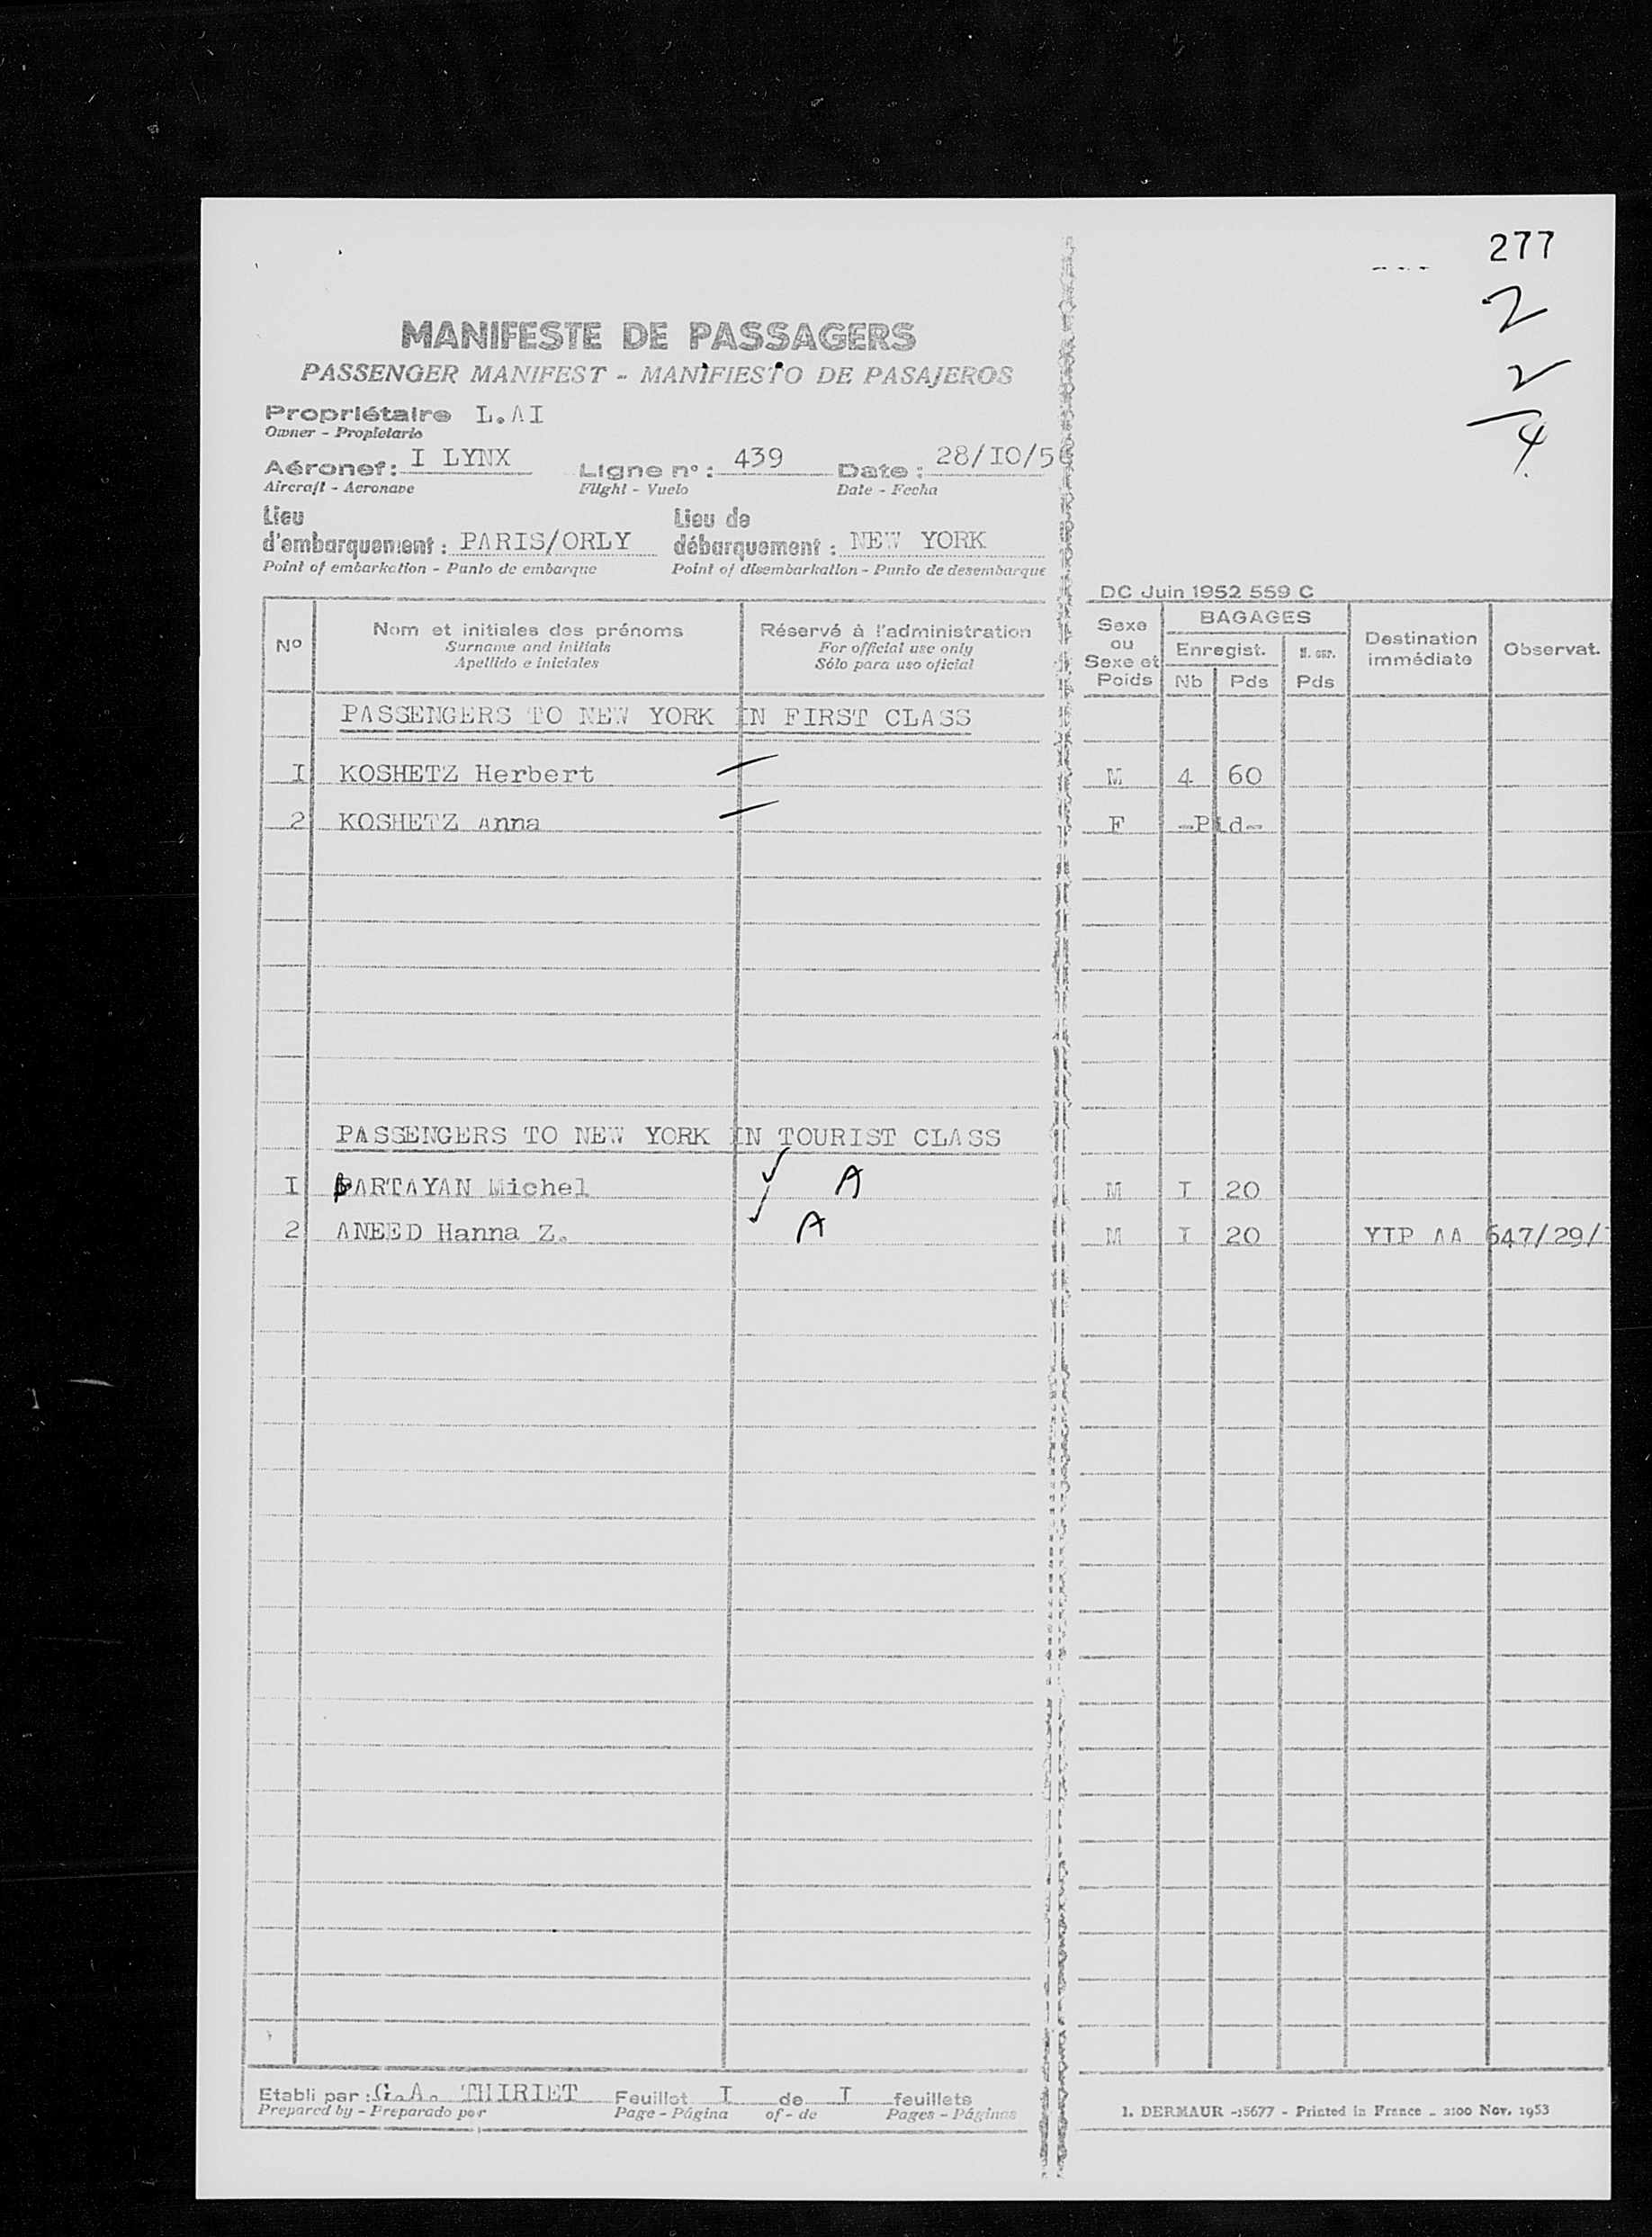 277
2
2
4
MANIFESTE DE PASSAGERS
PASSENGER MANIFEST - MANIFIESTO DE PASAJEROS
Propriétaire L.AI
Owner - Propietario
Aéronef: I LYNX Ligne n°: 439 Date: 28/IO/56
Aircraft - Aeronave Flight - Vuelo Date - Fecha
Lieu Lieu de
d'embarquement: PARIS/ORLY débarquement: NEW YORK
Point of embarkation - Punto de embarque Point of disembarkation - Punto de desembarque
DC Juin 1952 559 C
Nº Nom et initiales des prénoms Réservé à l'administration Sexe ou Sexe et Poids BAGAGES Destination immédiate Observat.
Surname and initials For official use only Enregist.
Apellido e iniciales Sólo para uso oficial Nb Pds Pds
PASSENGERS TO NEW YORK IN FIRST CLASS
I KOSHETZ Herbert M 4 60
2 KOSHETZ Anna F -Pld-
PASSENGERS TO NEW YORK IN TOURIST CLASS
I PARTAYAN Michel A M I 20
2 ANEED Hanna Z. A M I 20 YIP AA 647/29/
Etabli par: G.A. THIRIET Feuillet I de I feuillets
Prepared by - Preparado por Page - Página of - de Pages - Páginas
1. DERMAUR -15677 - Printed in France - 2100 Nov. 1953